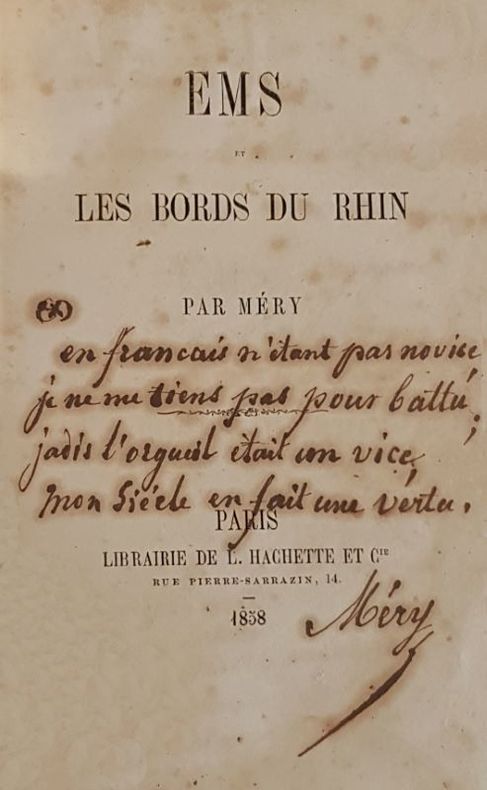 EMS
ET
LES BORDS DU RHIN
PAR MÉRY
en francais n'étant pas novice
je ne me tiens pas pour battu;
jadis l'orgueil était un vice,
mon siécle en fait une vertu.
PARIS
LIBRAIRIE DE L. HACHETTE ET Cie
RUE PIERRE-SARRAZIN, 14.
1858
Méry